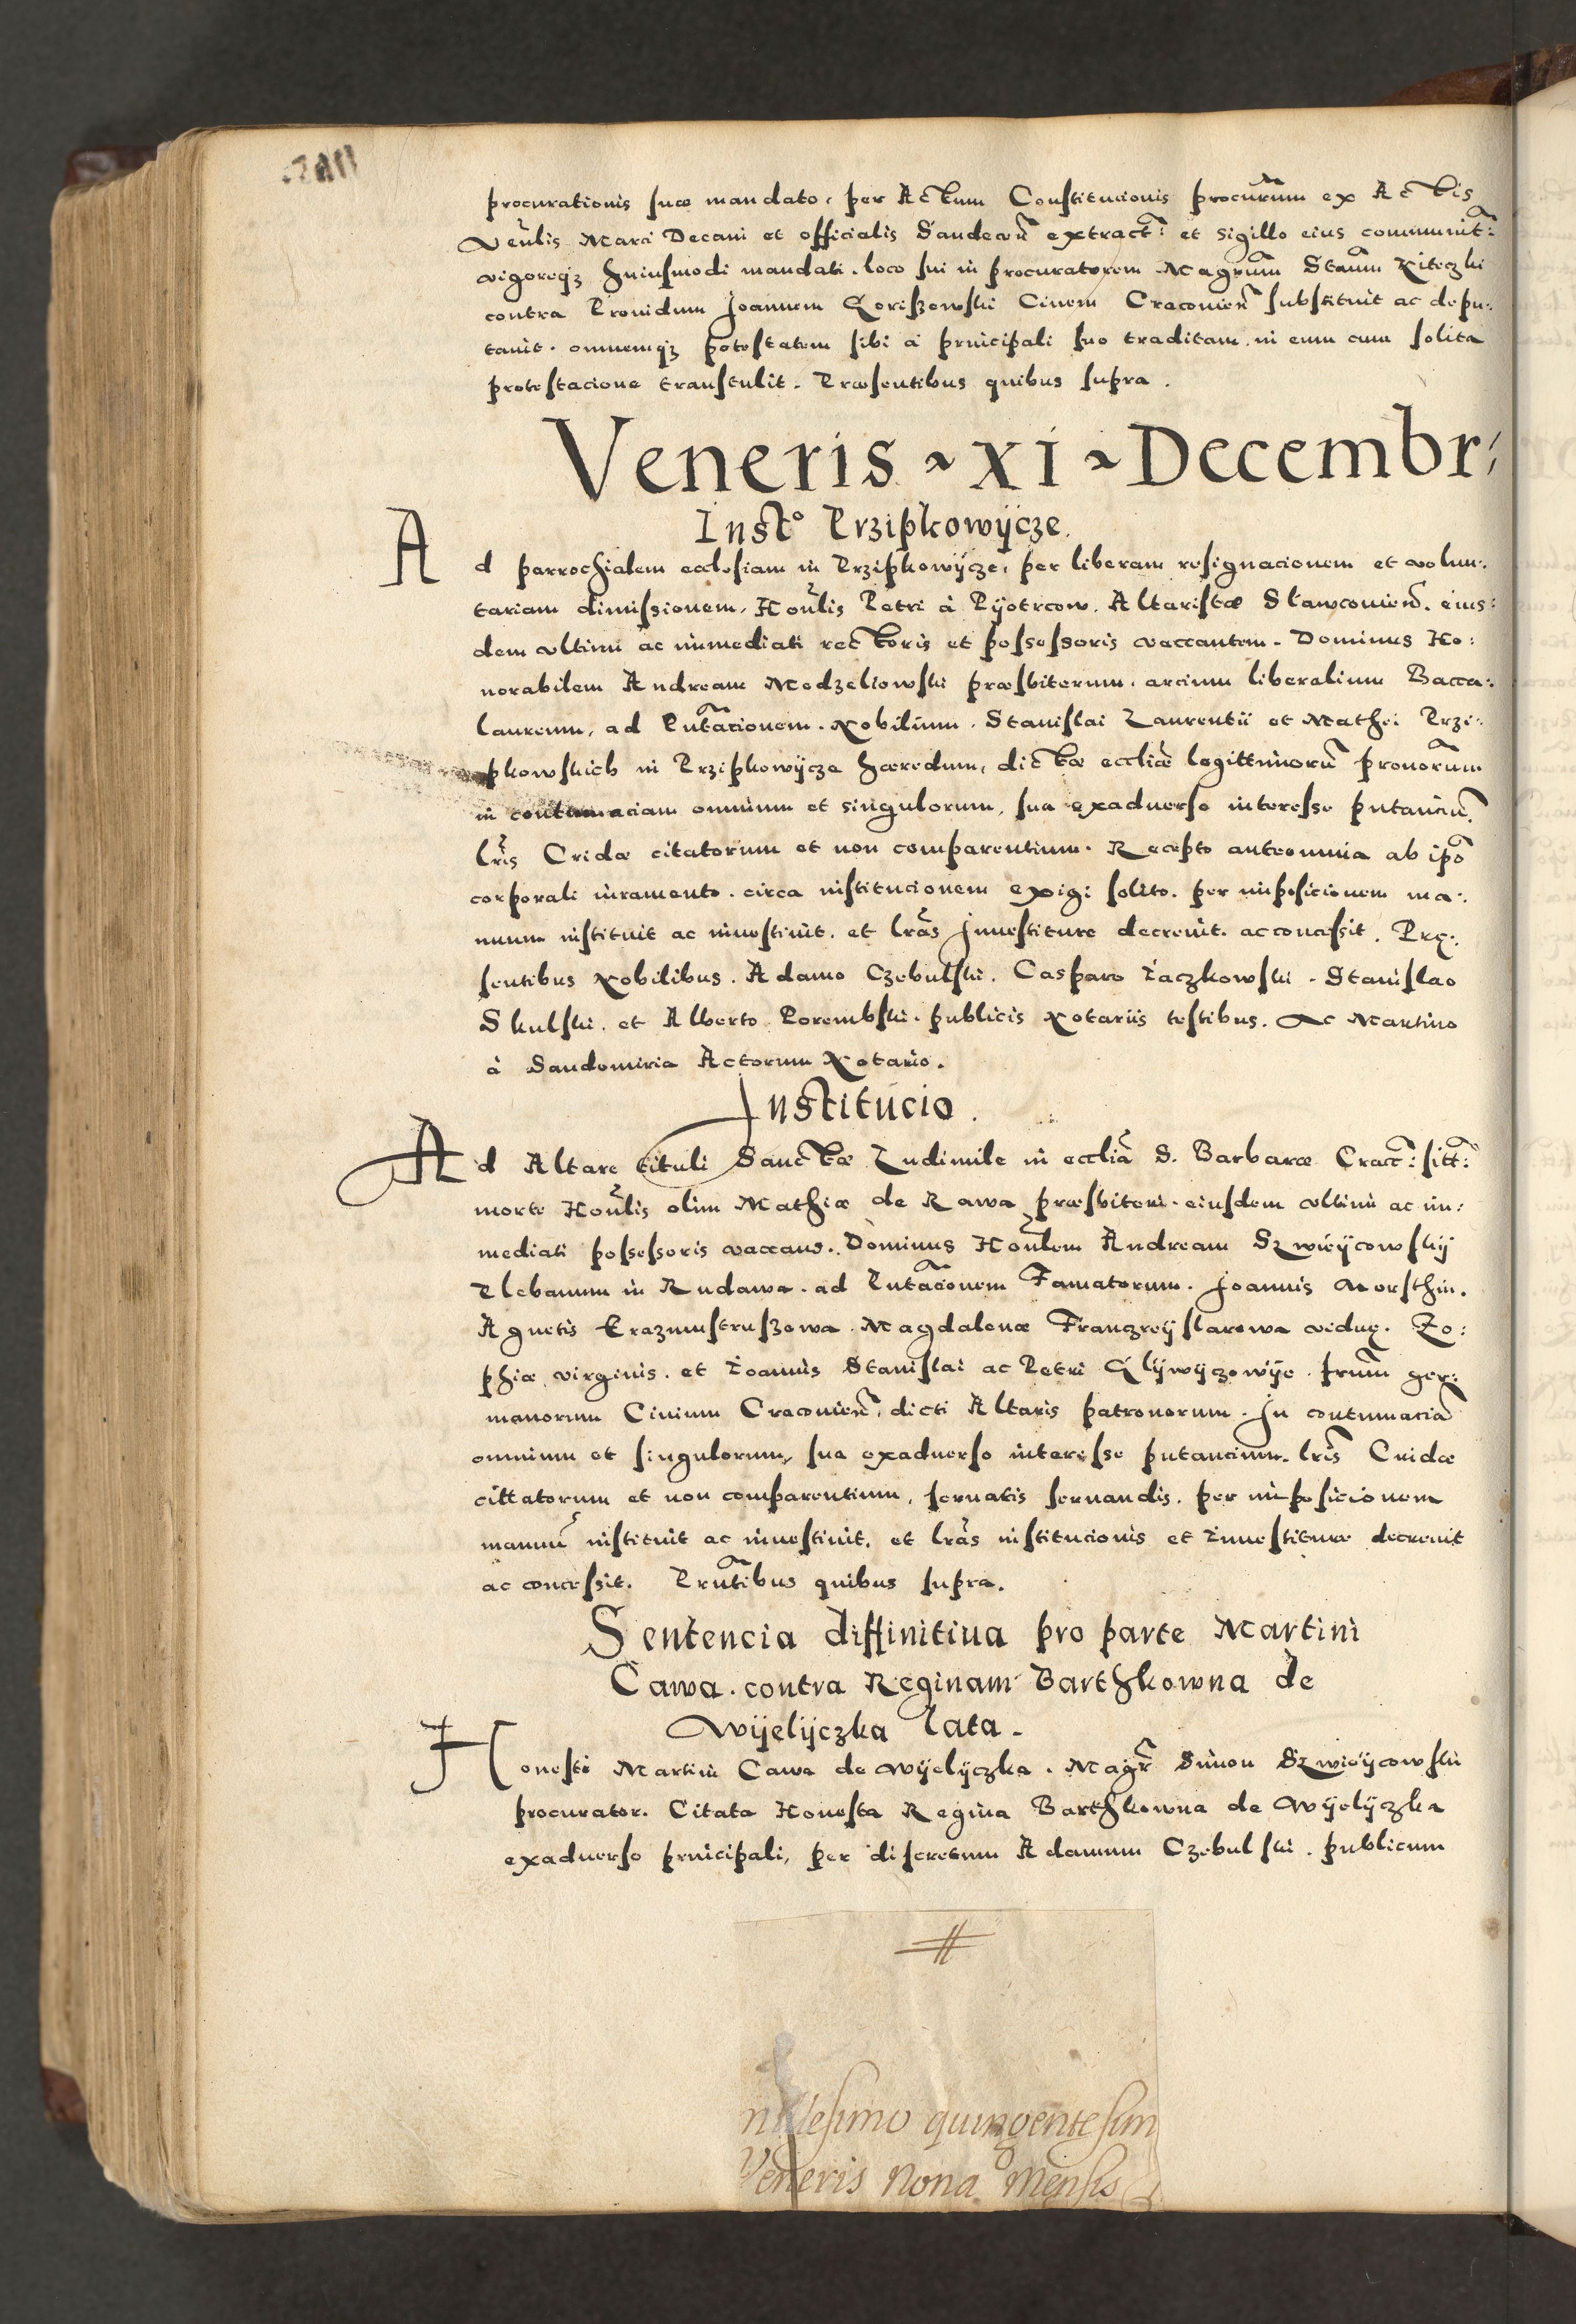 procurationis suæ mandato, per Actum Constitucionis procurũm ex Actis
Veñlis Marci Decani et officialis Sandecen̄ extract: et sigillo eius communit:
vigoreqz huiusmodi mandati. loco sui in procuratorem Magrum Stãum Kiteczki
contra Prouidum Joannem Goriszowski Ciuem Cracouien̄ substituit ac depu:
tauit. omnemqz potestatem sibi à principali suo traditam. in eum cum solita
protestacione transtulit. Præsentibus quibus supra.
Veneris ~ XI ~ Decembr:
Inst° Przipkowÿcze.
Ad parrochialem ecclesiam in Przipkowÿcze, per liberam resignacionem et volun:
tariam dimissionem, Hoñlis Petri à Pÿotrcow. Altaristæ Slawcouien̄. eius:
dem vltimi ac immediati rectoris et possessoris vaccantem. Dominus Ho:
norabilem Andream Modzeliowski præsbiterum. arcium liberalium Bacca:
laureum, ad Pñtacionem. Nobilium. Stanislai Laurentii et Mathei Przi:
pkowskich in Przipkowÿcze hæredum, dictæ eccliæ legittimorũ pronorum
in contumaciam omnium et singulorum, sua exaduerso interesse putanciũ.
lrĩs Cridæ citatorum et non comparentium. Recepto anteomnia ab ipõ
corporali iuramento. circa institucionem exigi solito. per imposicionem ma:
nuum instituit ac inuestiuit. et lrãs Inuestiture decreuit. ac concessit. Prę:
sentibus Nobilibus. Adamo Czebulski. Casparo Laczkowski. Stanislao
Skulski. et Alberto Porembski. publicis Notariis testibus. Ac Martino
à Sandomiria Actorum Notario.
Institucio.
Ad Altare tituli Sanctæ Ludimile in ecclia S. Barbaræ Cracc: sitt:
morte Hoñlis olim Mathiæ de Rawa præsbiteri. eiusdem vltimi ac im:
mediati possessoris vaccans. Dominus Hoñlem Andream Szwieÿcowskÿ
Plebanum in Rudawa. ad Pñtacionem Famatorum. Joannis Morsthin.
Agnetis Erazmustruszowa. Magdalenæ Franczreÿslarowa viduę. Zo:
phiæ virginis. et Ioannis Stanislai ac Petri Glÿwÿczowÿe. frum ger:
manorum Ciuium Cracouien̄, dicti Altaris patronorum. In contumacia
omnium et singulorum, sua exaduerso interesse putancium. lrĩs Cridæ
cittatorum et non comparentium, seruatis seruandis. per imposicionem
manuũ instituit ac inuestiuit. et lrãs institucionis et Inuestituræ decreuit
ac concessit. Prñtibus quibus supra.
Sentencia diffinitiua pro parte Martini
Cawa. contra Reginam Barthkowna de
Wÿelÿczka lata.
Honesti Martini Cawa de Wÿelÿczka. Magr̃ Simon Szwieÿcowski
procurator. Citata Honesta Regina Barthkowna de Wÿelÿczka
exaduerso principali, per discretum Adamum Czebulski. publicum
millesimo quingentesim
Veneris Nona Mensis